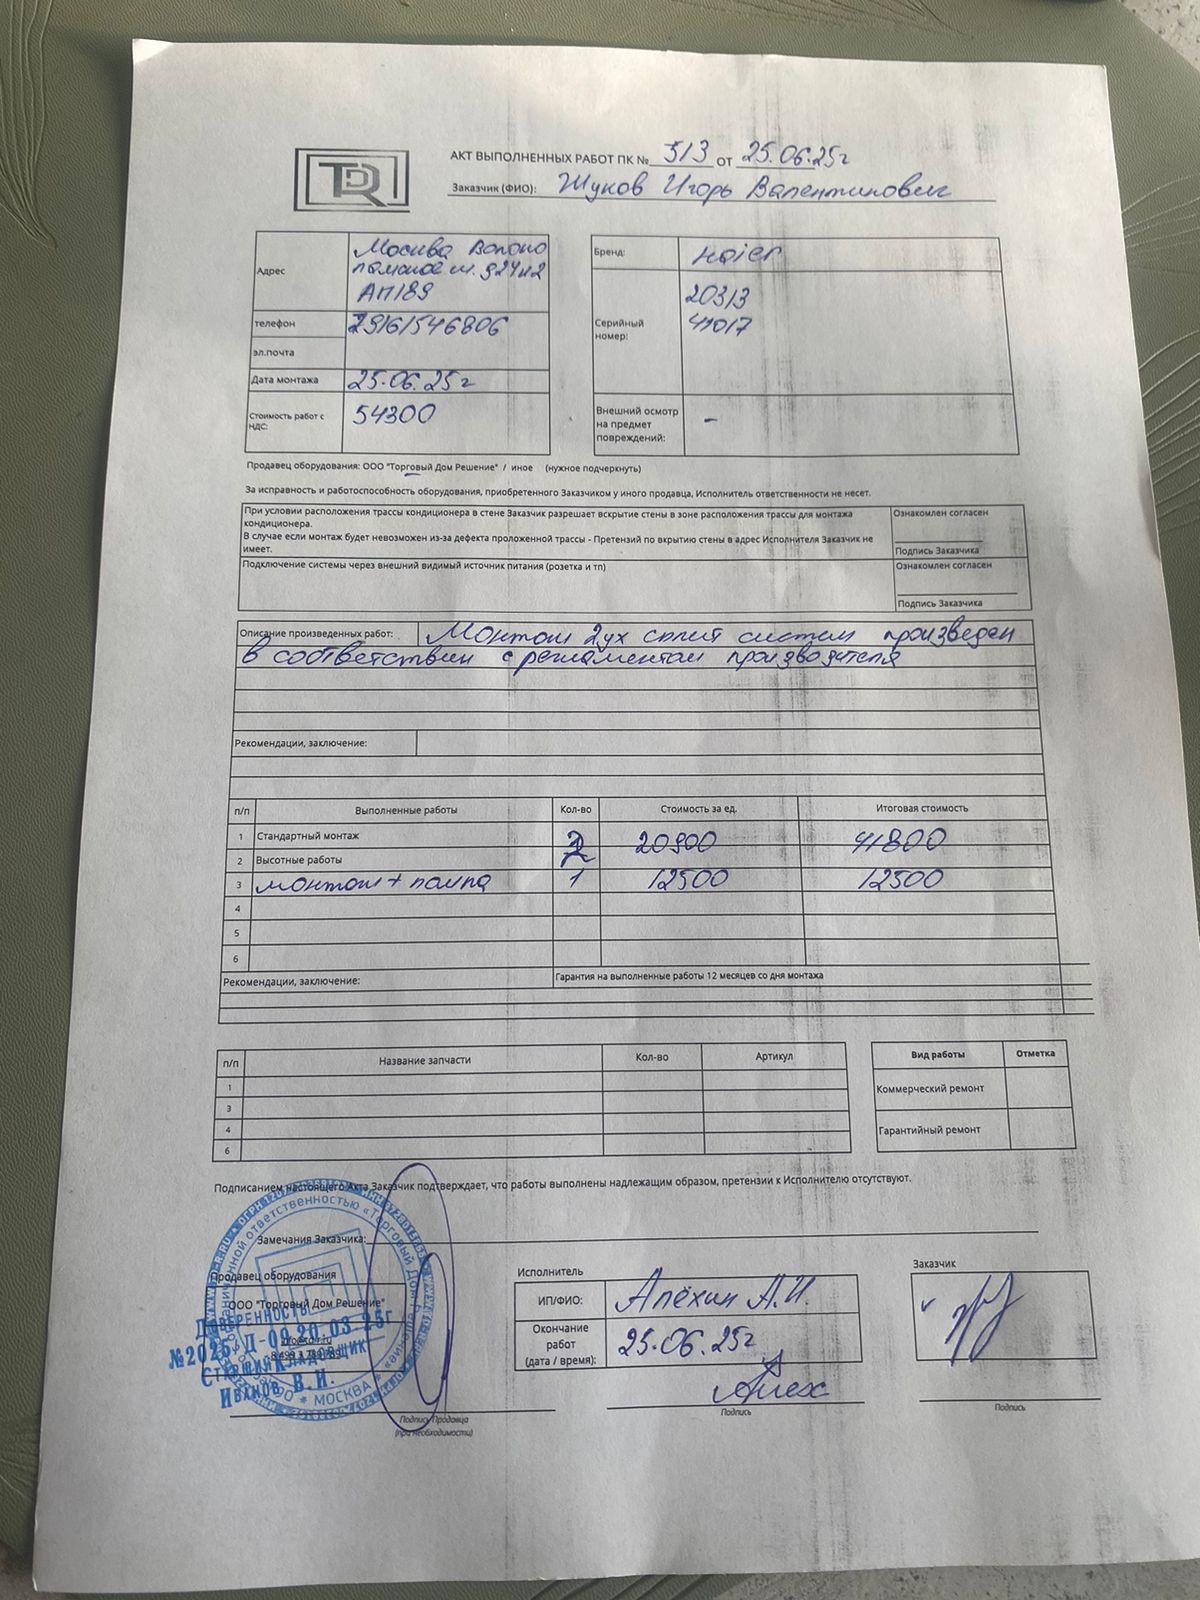 TDR
АКТ ВЫПОЛНЕННЫХ РАБОТ ПК № 513 от 25.06.25г
Заказчик (ФИО): Жуков Игорь Валентинович
Адрес
Москва Волоко
ламское ш. д24к2
АП189
телефон 79161546806
эл.почта
Дата монтажа 25.06.25г
Стоимость работ с НДС: 54300
Бренд: Haier
Серийный номер:
20313
41017
Внешний осмотр на предмет повреждений: –
Продавец оборудования: ООО "Торговый Дом Решение" / иное (нужное подчеркнуть)
За исправность и работоспособность оборудования, приобретенного Заказчиком у иного продавца, Исполнитель ответственности не несет.
При условии расположения трассы кондиционера в стене Заказчик разрешает вскрытие стены в зоне расположения трассы для монтажа
кондиционера.
В случае если монтаж будет невозможен из-за дефекта проложенной трассы - Претензий по вкрытию стены в адрес Исполнителя Заказчик не
имеет.
Ознакомлен согласен
Подпись Заказчика
Подключение системы через внешний видимый источник питания (розетка и тп)
Ознакомлен согласен
Подпись Заказчика
Описание произведенных работ: Монтаж 2ух сплит систем произведен
в соответствии с регламентом производителя
Рекомендации, заключение:
п/п Выполненные работы Кол-во Стоимость за ед. Итоговая стоимость
1 Стандартный монтаж 2 20900 41800
2 Высотные работы
3 монтаж + помпа 1 12500 12500
4
5
6
Рекомендации, заключение: Гарантия на выполненные работы 12 месяцев со дня монтажа
п/п Название запчасти Кол-во Артикул
1
3
4
6
Вид работы Отметка
Коммерческий ремонт
Гарантийный ремонт
Подписанием настоящего Акта Заказчик подтверждает, что работы выполнены надлежащим образом, претензии к Исполнителю отсутствуют.
Замечания Заказчика:
Продавец оборудования
ООО "Торговый Дом Решение"
Доверенность
№2025/Д-09 20.03.25г
Старший Кладовщик
Иванов В.И.
ответственностью «Торговый Дом Решение» * МОСКВА *
Подпись Продавца
(при необходимости)
Исполнитель
ИП/ФИО: Алёхин А.И.
Окончание работ (дата / время): 25.06.25г
Алех
Подпись
Заказчик
Подпись